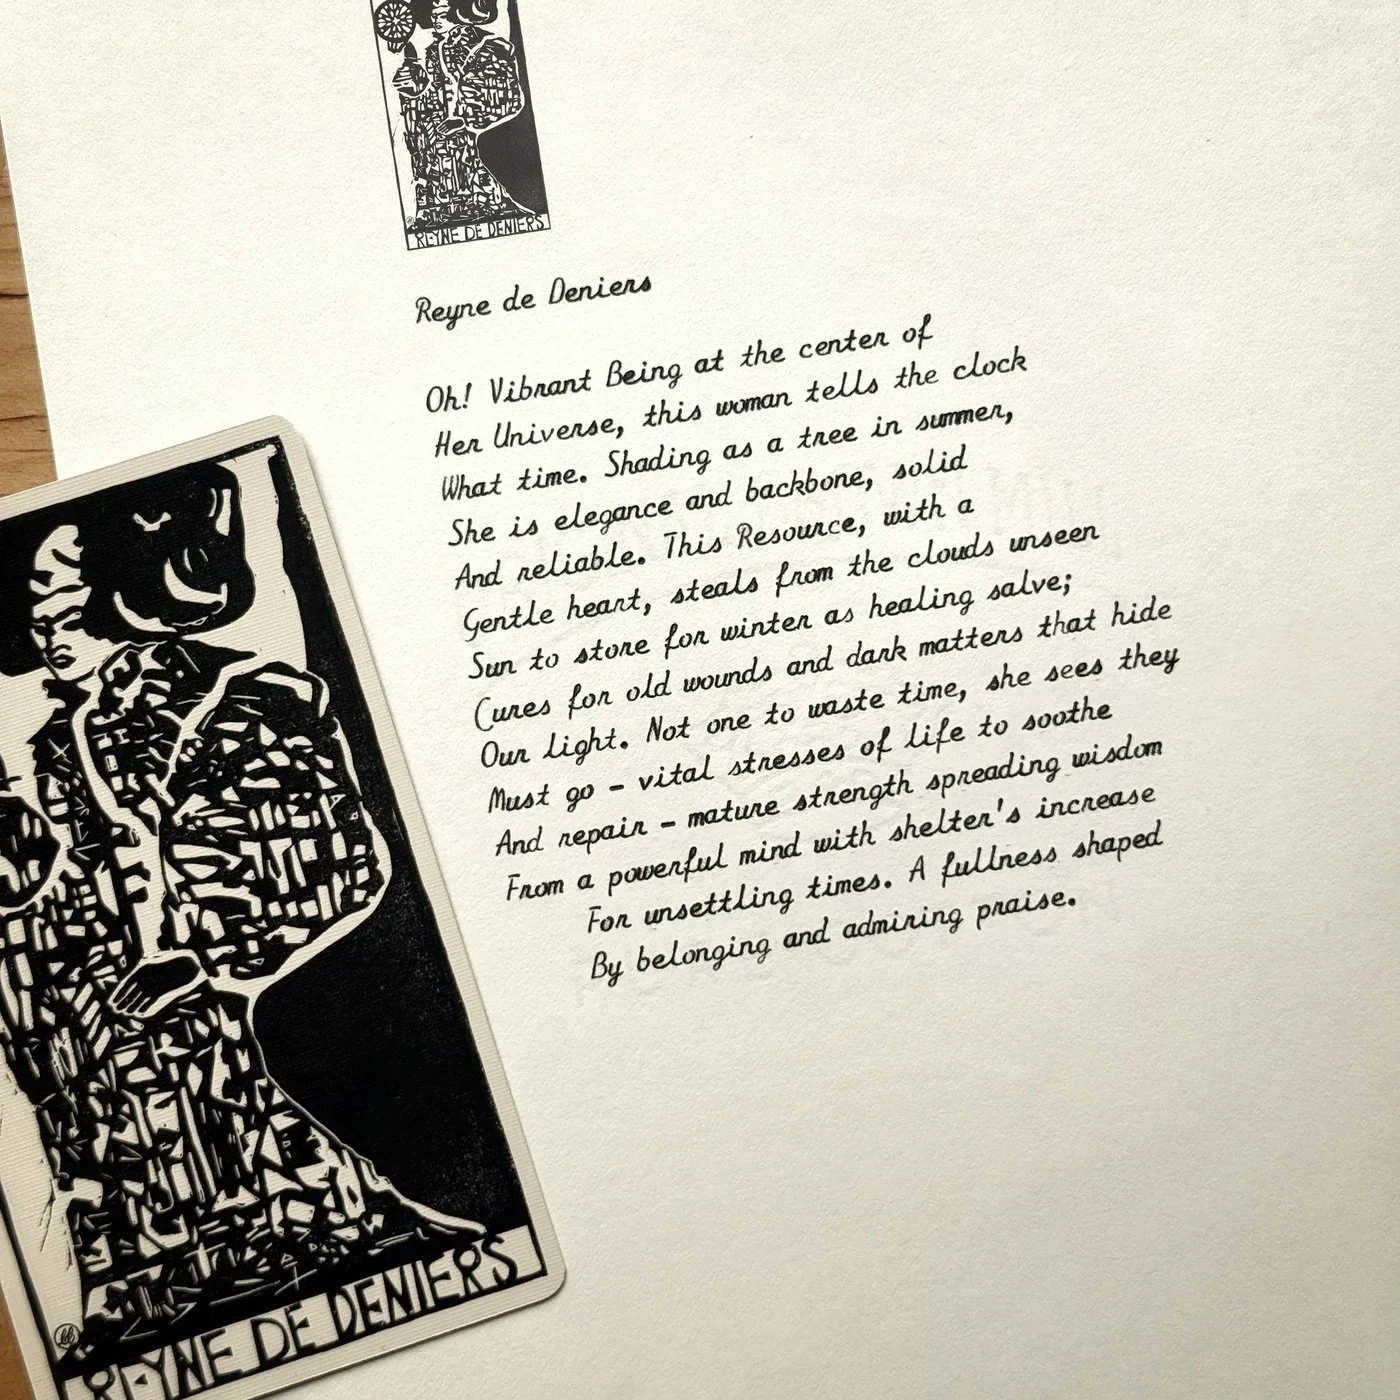 REYNE DE DENIERS
Reyne de Deniers
Oh! Vibrant Being at the center of
Her Universe, this woman tells the clock
What time. Shading as a tree in summer,
She is elegance and backbone, solid
And reliable. This Resource, with a
Gentle heart, steals from the clouds unseen
Sun to store for winter as healing salve;
Cures for old wounds and dark matters that hide
Our light. Not one to waste time, she sees they
Must go – vital stresses of life to soothe
And repair – mature strength spreading wisdom
From a powerful mind with shelter's increase
For unsettling times. A fullness shaped
By belonging and admiring praise.
REYNE DE DENIERS